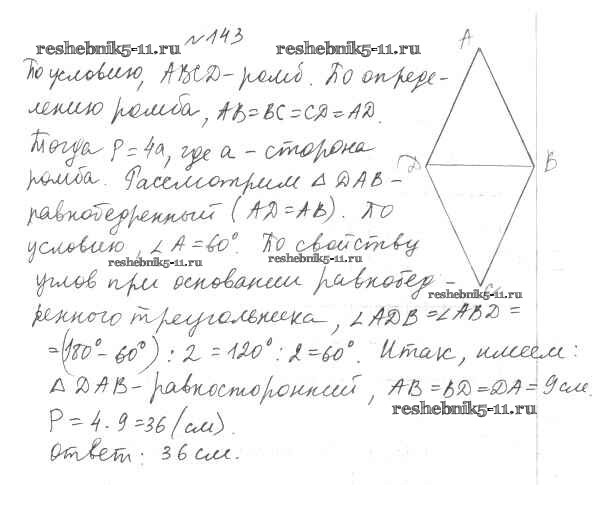 №143
reshebnik5-11.ru reshebnik5-11.ru
По условию, ABCD - ромб. По опреде-
лению ромба, AB=BC=CD=AD.
Тогда P=4a, где a - сторона
ромба. Рассмотрим △DAB-
равнобедренный (AD=AB). По
условию, ∠A=60°. По свойству
reshebnik5-11.ru reshebnik5-11.ru
углов при основании равнобед-
ренного треугольника, ∠ADB=∠ABD=
=(180°-60°):2=120°:2=60°. Итак, имеем:
△DAB-равносторонний, AB=BD=DA=9см.
P=4·9=36(см).
Ответ: 36см.
A
D
B
C
reshebnik5-11.ru
reshebnik5-11.ru